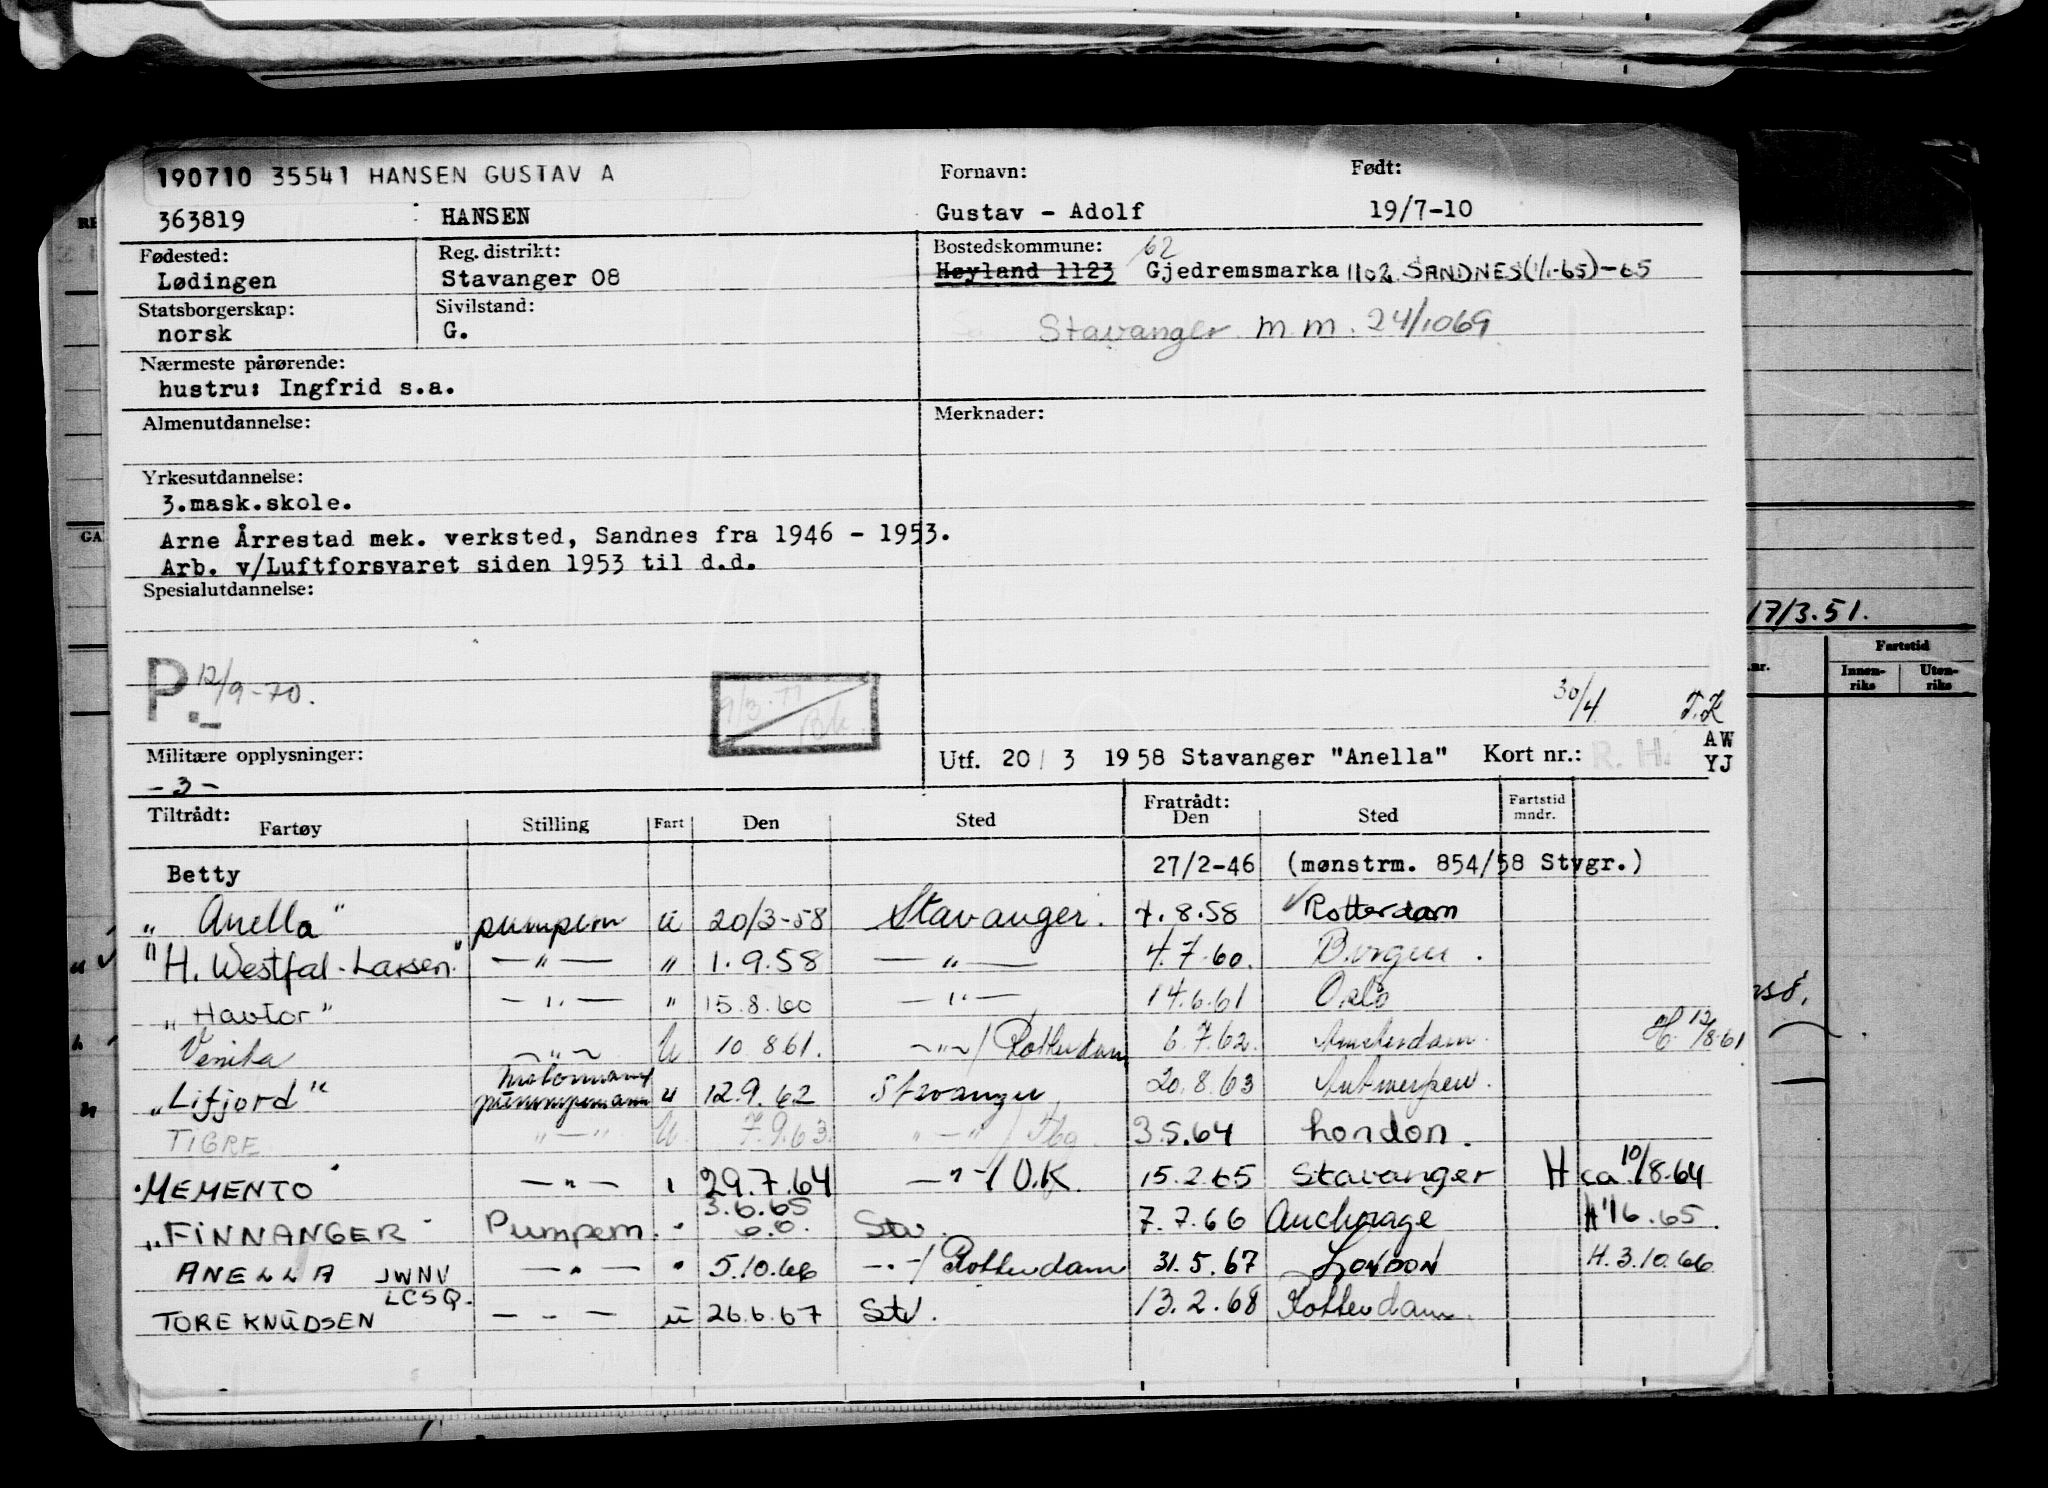 190710 35541 HANSEN GUSTAV A
Fornavn: Født:
363819 HANSEN Gustav - Adolf 19/7-10
Fødested: Reg. distrikt: Bostedskommune: 62
Lødingen Stavanger 08 Høyland 1123 Gjedremsmarka 1102 SANDNES (1/1-65)-65
Statsborgerskap: Sivilstand:
norsk G. Stavanger m.m. 24/1069
Nærmeste pårørende:
hustru: Ingfrid s.a.
Almenutdannelse: Merknader:
Yrkesutdannelse:
3.mask.skole.
Arne Årrestad mek. verksted, Sandnes fra 1946 - 1953.
Arb. v/Luftforsvaret siden 1953 til d.d.
Spesialutdannelse:
P.- 12/9-70.
9/3.77
30/4 T.K
Militære opplysninger: Utf. 20/3 1958 Stavanger "Anella" Kort nr.: R. H. AW YJ
-3-
Tiltrådt: Fratrådt:
Fartøy Stilling Fart Den Sted Den Sted Fartstid mndr.
Betty 27/2-46 (mønstrm. 854/58 Stvgr.)
"Anella" pumpem u 20/3-58 Stavanger. 7.8.58 Rotterdam
"H. Westfal-Larsen" —"— " 1.9.58 —"— 4.7.60. Bergen.
"Havtor" —"— " 15.8.60 —"— 14.6.61 Oslo
Venita —"— U 10 8 61. —"—/Rotterdam 6.7.62. Amsterdam. H. 12/8.61
"Lifjord" motormann pumpemann u 12.9.62 Stavanger 20.8.63 Antwerpen.
TIGRE "—" U. 7.9.63. "—"/Hbg. 3.5.64 London.
"MEMENTO" —"— 29.7.64 —"—/U.K. 15.2.65 Stavanger H ca 10/8.64
"FINNANGER" Pumpem. " 3.6.65 Stv. 7.7.66 Anchorage H 16.65.
ANELLA JWNV —"— " 5.10.66 —"—/Rotterdam 31.5.67 LONDON H. 3.10.66
TORE KNUDSEN LCSQ. —"— u 26.6.67 Stv. 13.2.68 Rotterdam.
17/3.51.
Fartstid
nr. Innenriks Utenriks